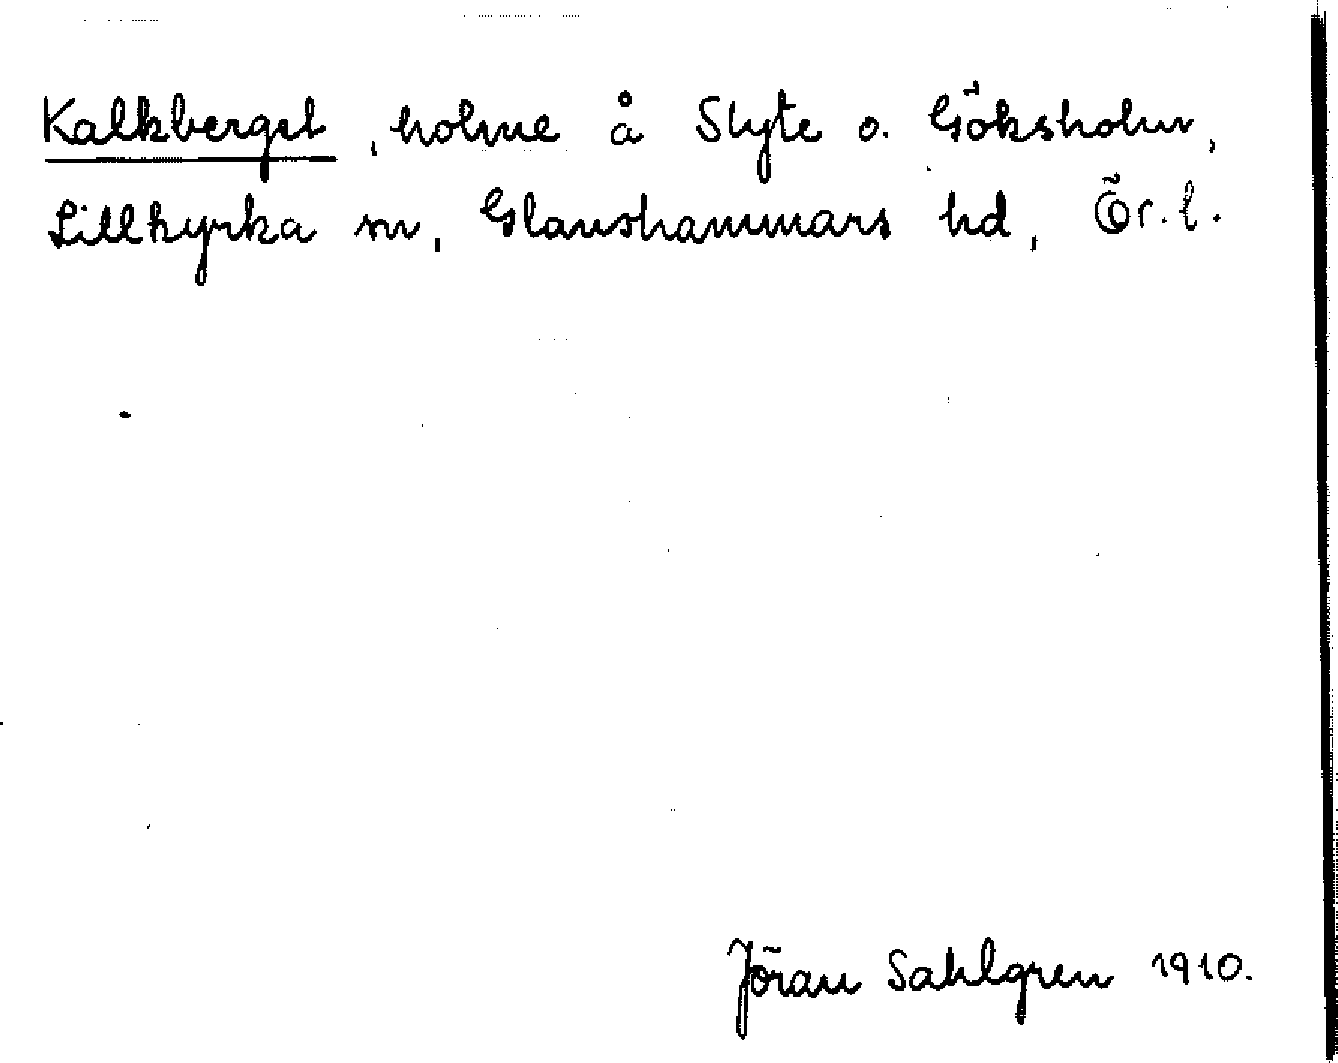 Kalkberget, holme å Slyte o. Göksholm,
Lillkyrka sn, Glanshammars hd, Ör. l.
Jöran Sahlgren 1910.